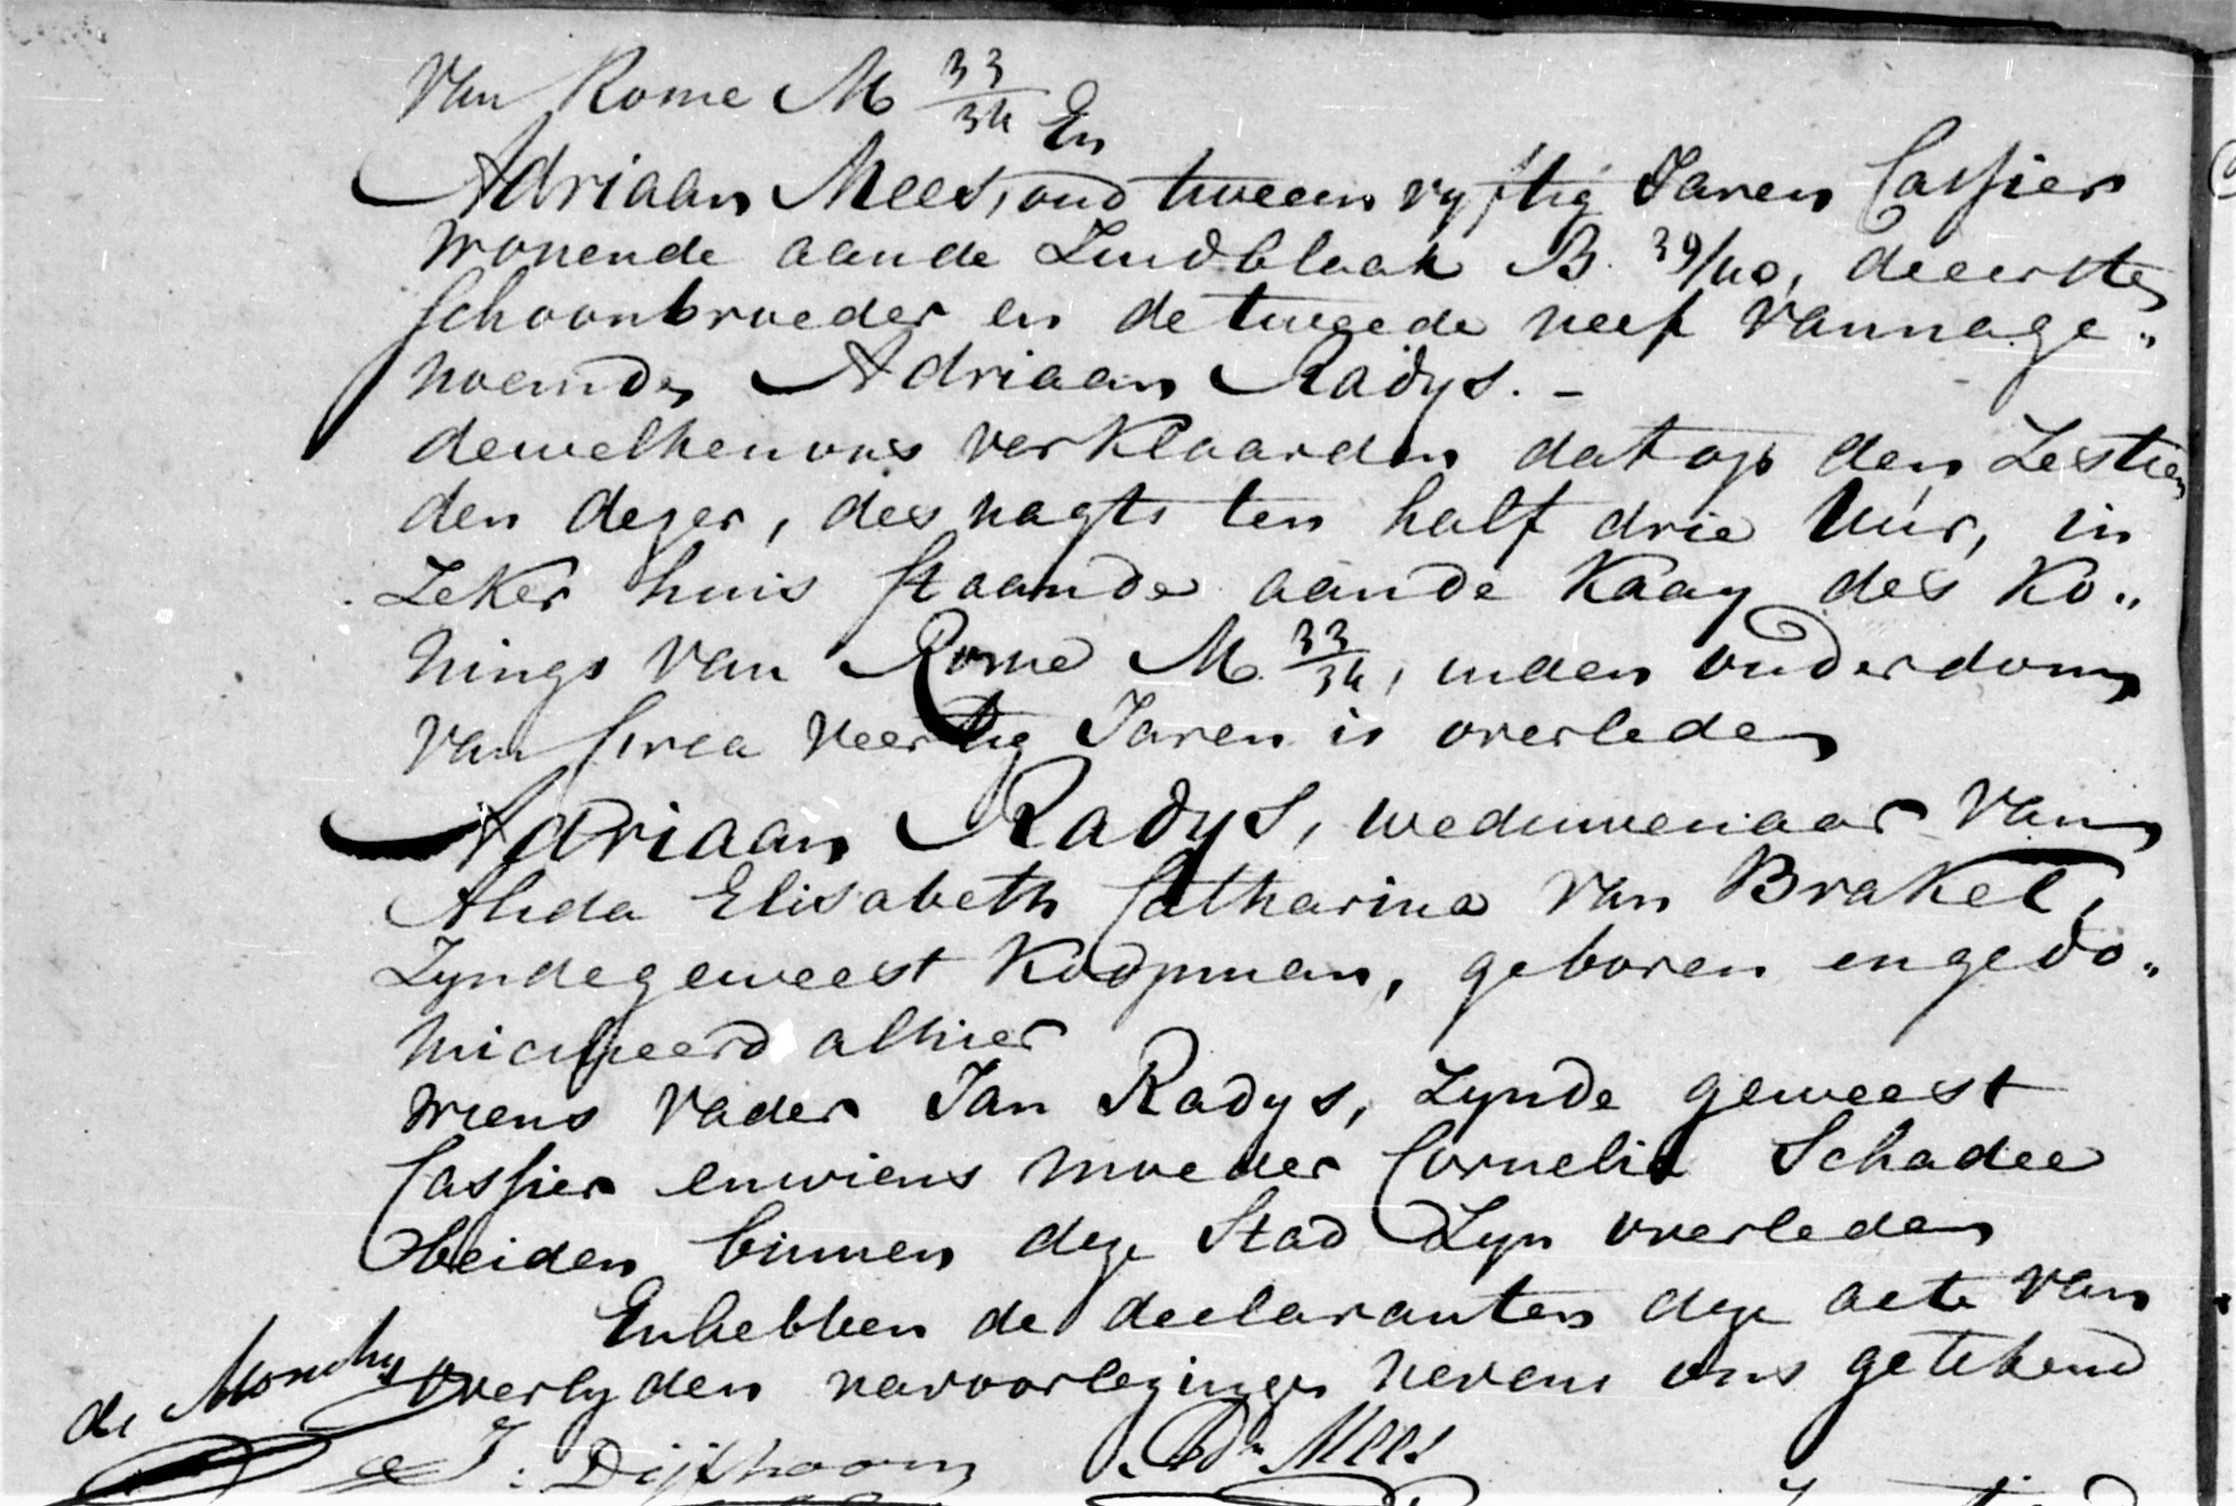 van Rome M 33/34 En
Adriaan Mees, oud tweeen vyftig Jaren Cassier
wonende aande Zuidblaak B. 39/40, de eerste
schoonbroeder en de tweede neef van nage„
noemde Adriaan Radys. –
dewelken ons verklaarden dat op den Zestien
den dezer, des nagts ten half drie Uur, in
Zeker huis staande aande Kaay des Ko„
nings van Rome M. 33/34, inden ouderdom
van Circa veertig Jaren is overleden
Adriaan Radys, weduwenaar van
Alida Elisabeth Catharina van Brakel,
Zynde geweest Koopman, geboren en gedo„
micilieerd alhier
wiens vader Jan Radys, Zynde geweest
Cassier en wiens moeder Cornelia Schadee
beiden binnen deze Stad Zyn overleden
En hebben de declaranten deze acte van
overlyden na voorlezinge nevens ons getekend
de Monchy
J: Dijkhoorn Adn Mees